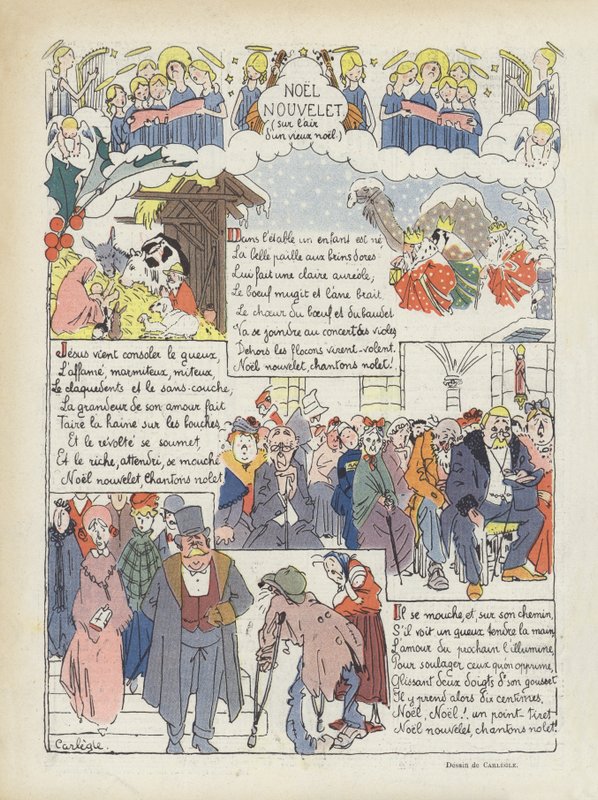 NOËL
NOUVELET
(sur l'air
d'un vieux noël)
Dans l'étable un enfant est né
La belle paille aux brins dorés
Lui fait une claire auréole;
Le bœuf mugit et l'âne brait.
Le chœur du bœuf et du baudet
Va se joindre au concert des violes
Dehors les flocons virent-volent.
Noël nouvelet, chantons nolet!
Jésus vient consoler le gueux,
L'affamé marmiteux, miteux
Le claquedents et le sans-couche;
La grandeur de son amour fait
Taire la haine sur les bouches
Et le révolté se soumet,
Et le riche, attendri, se mouche
Noël nouvelet, chantons nolet
Il se mouche et, sur son chemin,
S'il voit un gueux tendre la main,
L'amour du prochain l'illumine,
Pour soulager ceux qu'on opprime,
Glissant deux doigts d'son gousset
Il y prend alors dix centimes,
Noël, Noël! un point-tiret
Noël nouvelet, chantons nolet!
Carlègle.
Dessin de CARLÈGLE.